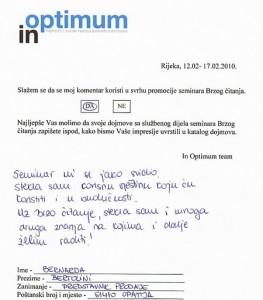 in optimum
Rijeka, 12.02- 17.02.2010.
Slažem se da se moj komentar koristi u svrhu promocije seminara Brzog čitanja.
DA
NE
Najljepše Vas molimo da svoje dojmove sa službenog dijela seminara Brzog
čitanja zapišete ispod, kako bismo Vaše impresije uvrstili u katalog dojmova.
In Optimum team
Seminar mi se jako svidio,
stekla sam korisnu vještinu koju ću
koristiti i u budućnosti.
Uz brzo čitanje, stekla sam i mnoga
druga znanja na kojima ću dalje
željeti raditi!
Ime - BERNARDA
Prezime - BERTOLINI
Zanimanje - PREDSTAVNIK PRODAJE
Poštanski broj i mjesto - 51410 OPATIJA